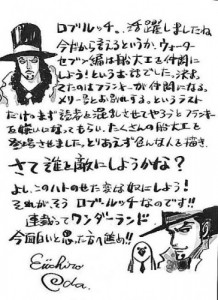 ロブ・ルッチ...活躍しましたね
今だから言えるというか、ウォーター
セブン編は船大工を仲間に
しよう!という話でした。決ま
てたのはフランキーが仲間になる。
メリー号とお別れする。というラスト
だけ。まず読者を混乱させてやろうとフランキー
を嫌いになってもらい、たくさんの船大工を
登場させました。とりあえず色んな人を描き、
さて誰を敵にしようかな?
よし、このハトのせた変な奴にしよう!
それが、そう ロブ・ルッチなのです!!
連載ってワンダーランド
今面白いと思った方へ進め!!
Eiichiro
Oda.